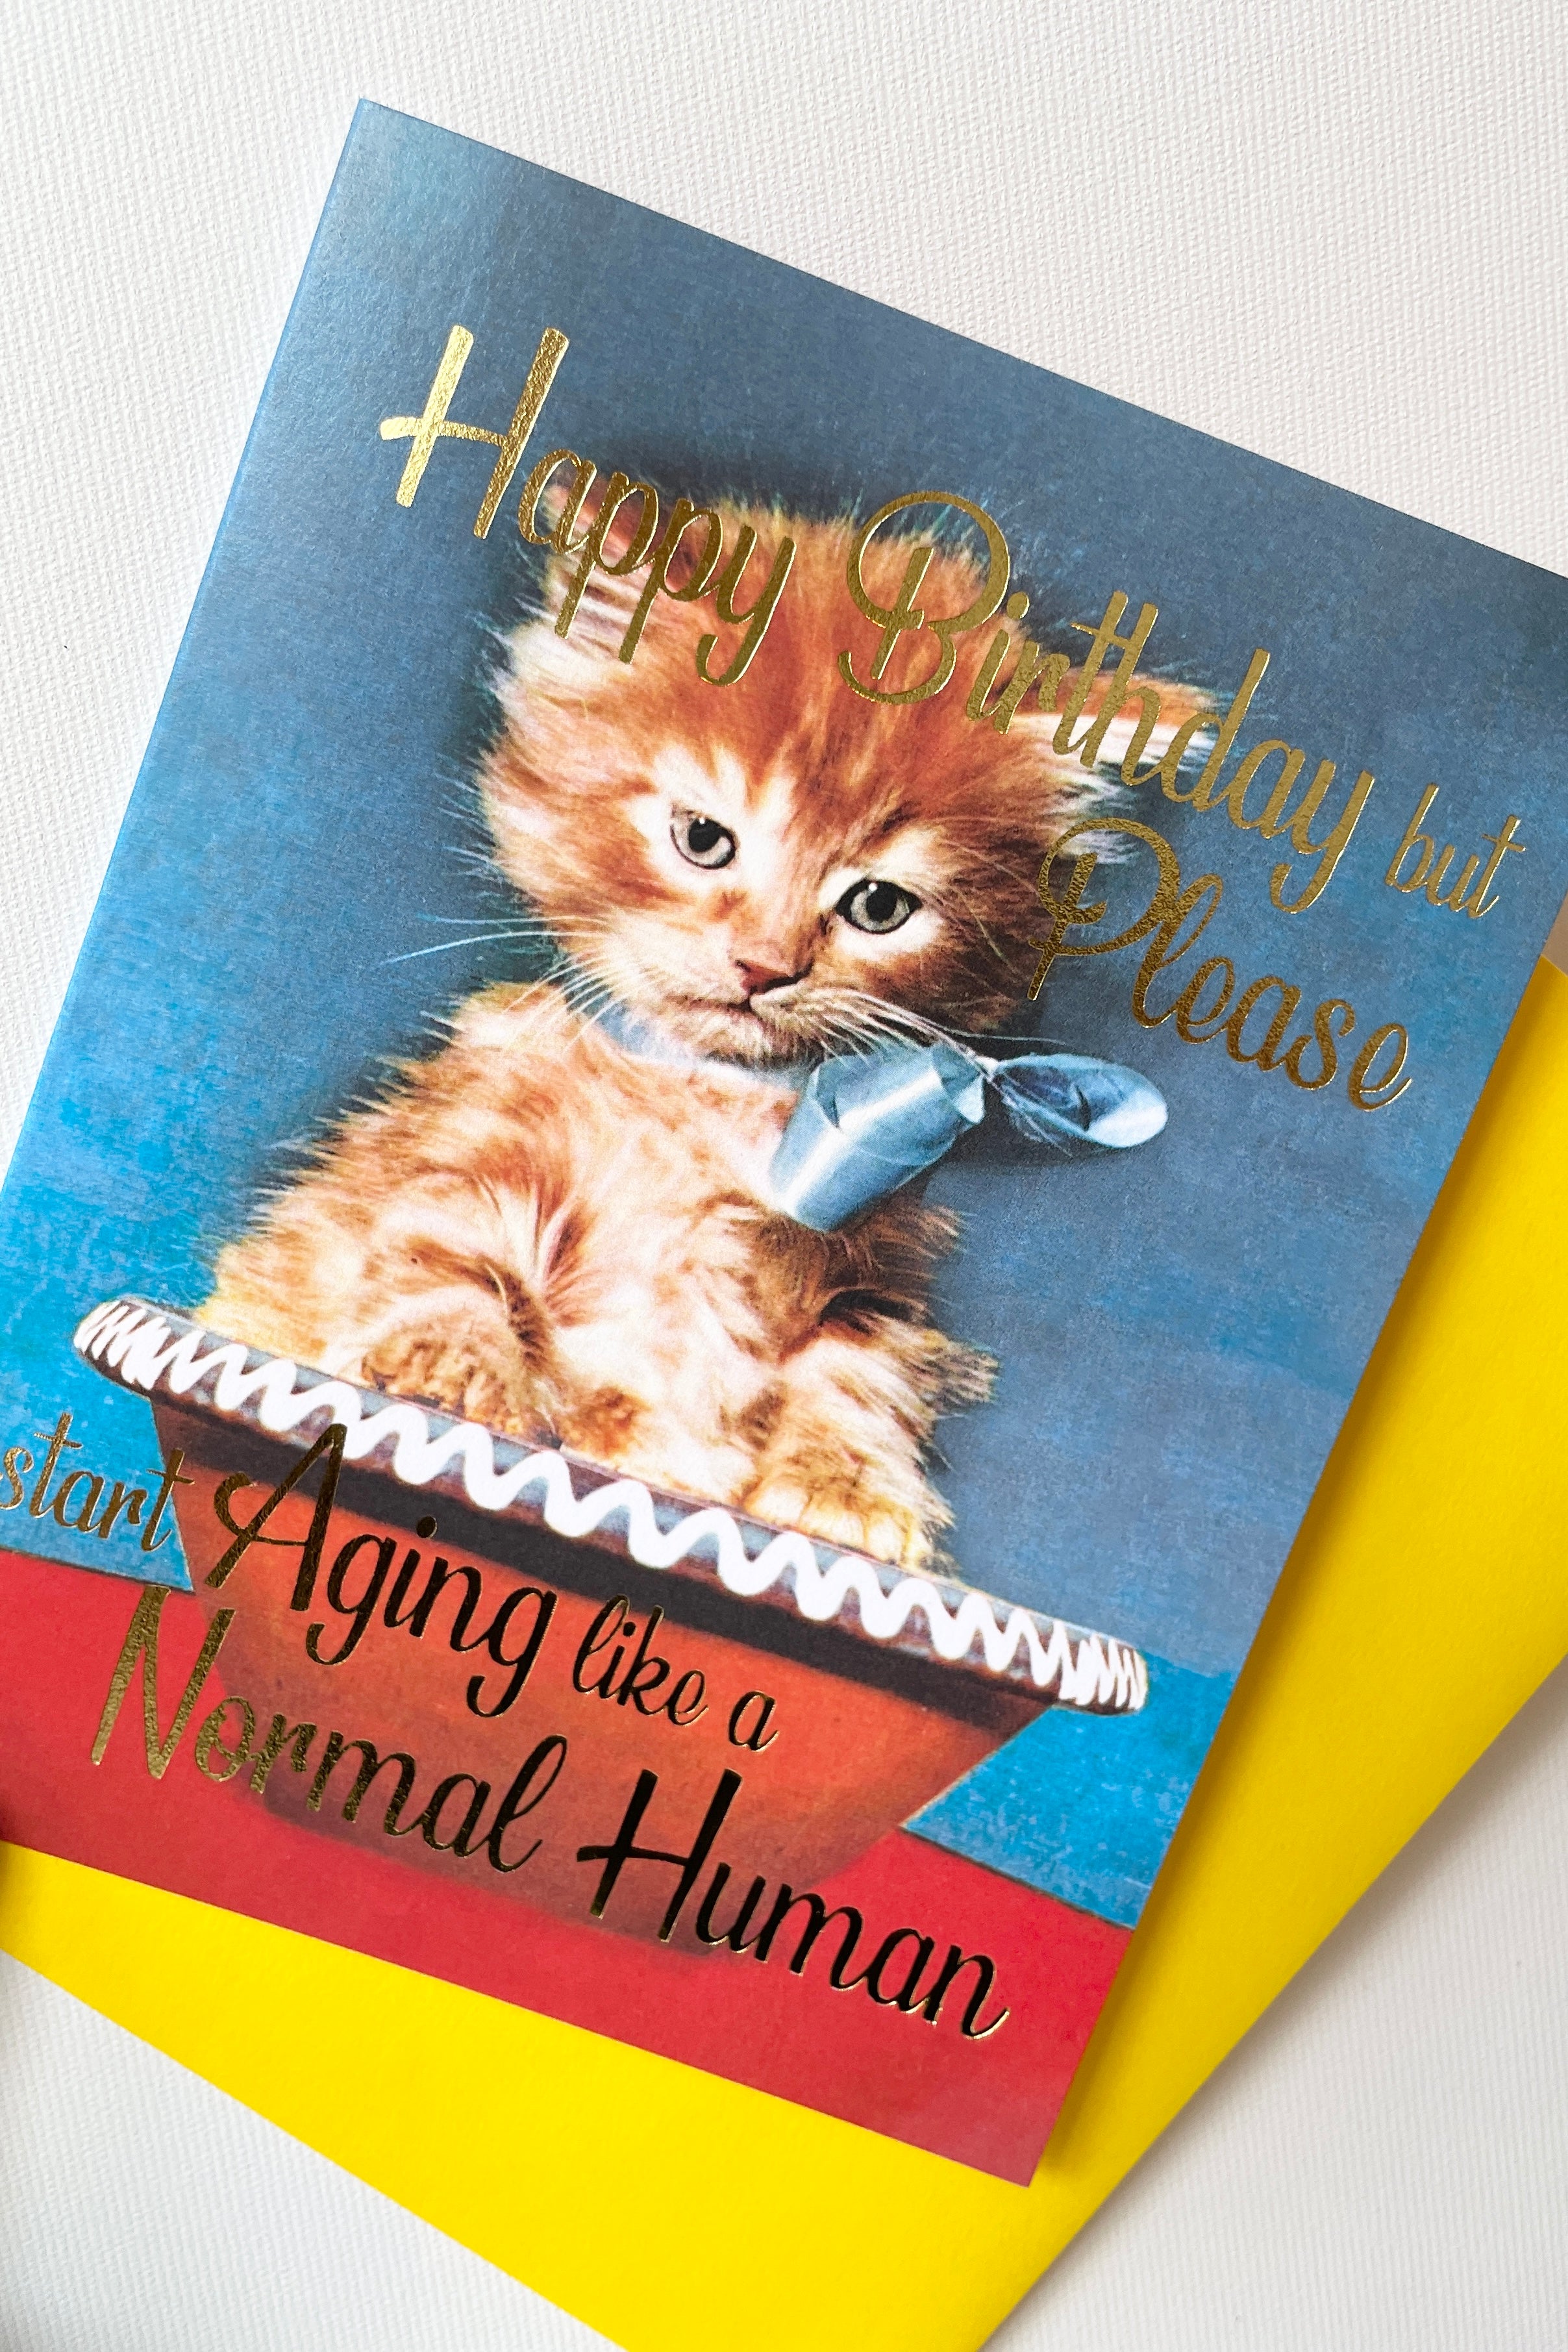 Happy Birthday but
Please
start Aging like a
Normal Human